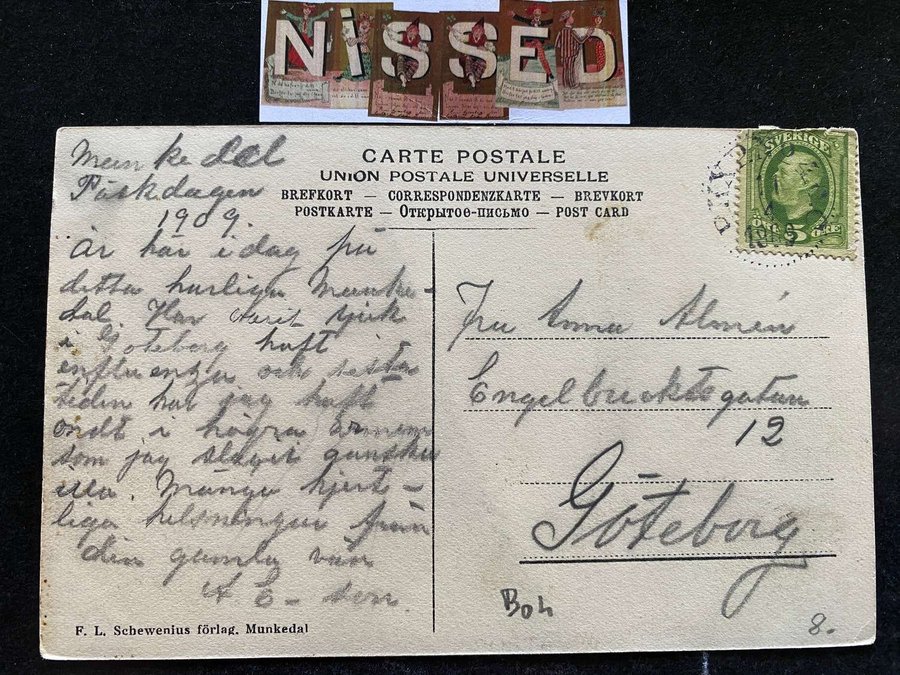 NISSED
Munkedal
Påskdagen
1909.
CARTE POSTALE
UNION POSTALE UNIVERSELLE
BREFKORT — CORRESPONDENZKARTE — BREVKORT
POSTKARTE — Открытое-письмо — POST CARD
SVERIGE
5 ÖRE
Är här i dag på
detta härliga Munke-
dal Har varit sjuk
i Göteborg haft
influenza och sista
tiden har jag haft
ondt i högra armen
som jag slaget ganska
illa. Många hjert-
liga helsningar från
din gamla vän
A E-son.
Fru Anna Almén
Engelbrektsgatan
12
Göteborg
Boh
8.
F. L. Schewenius förlag, Munkedal